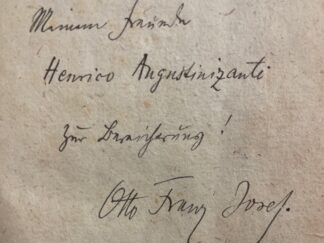 Meinem Freunde
Henrico Augustinizanti
zur Bereicherung!
Otto Franz Josef.